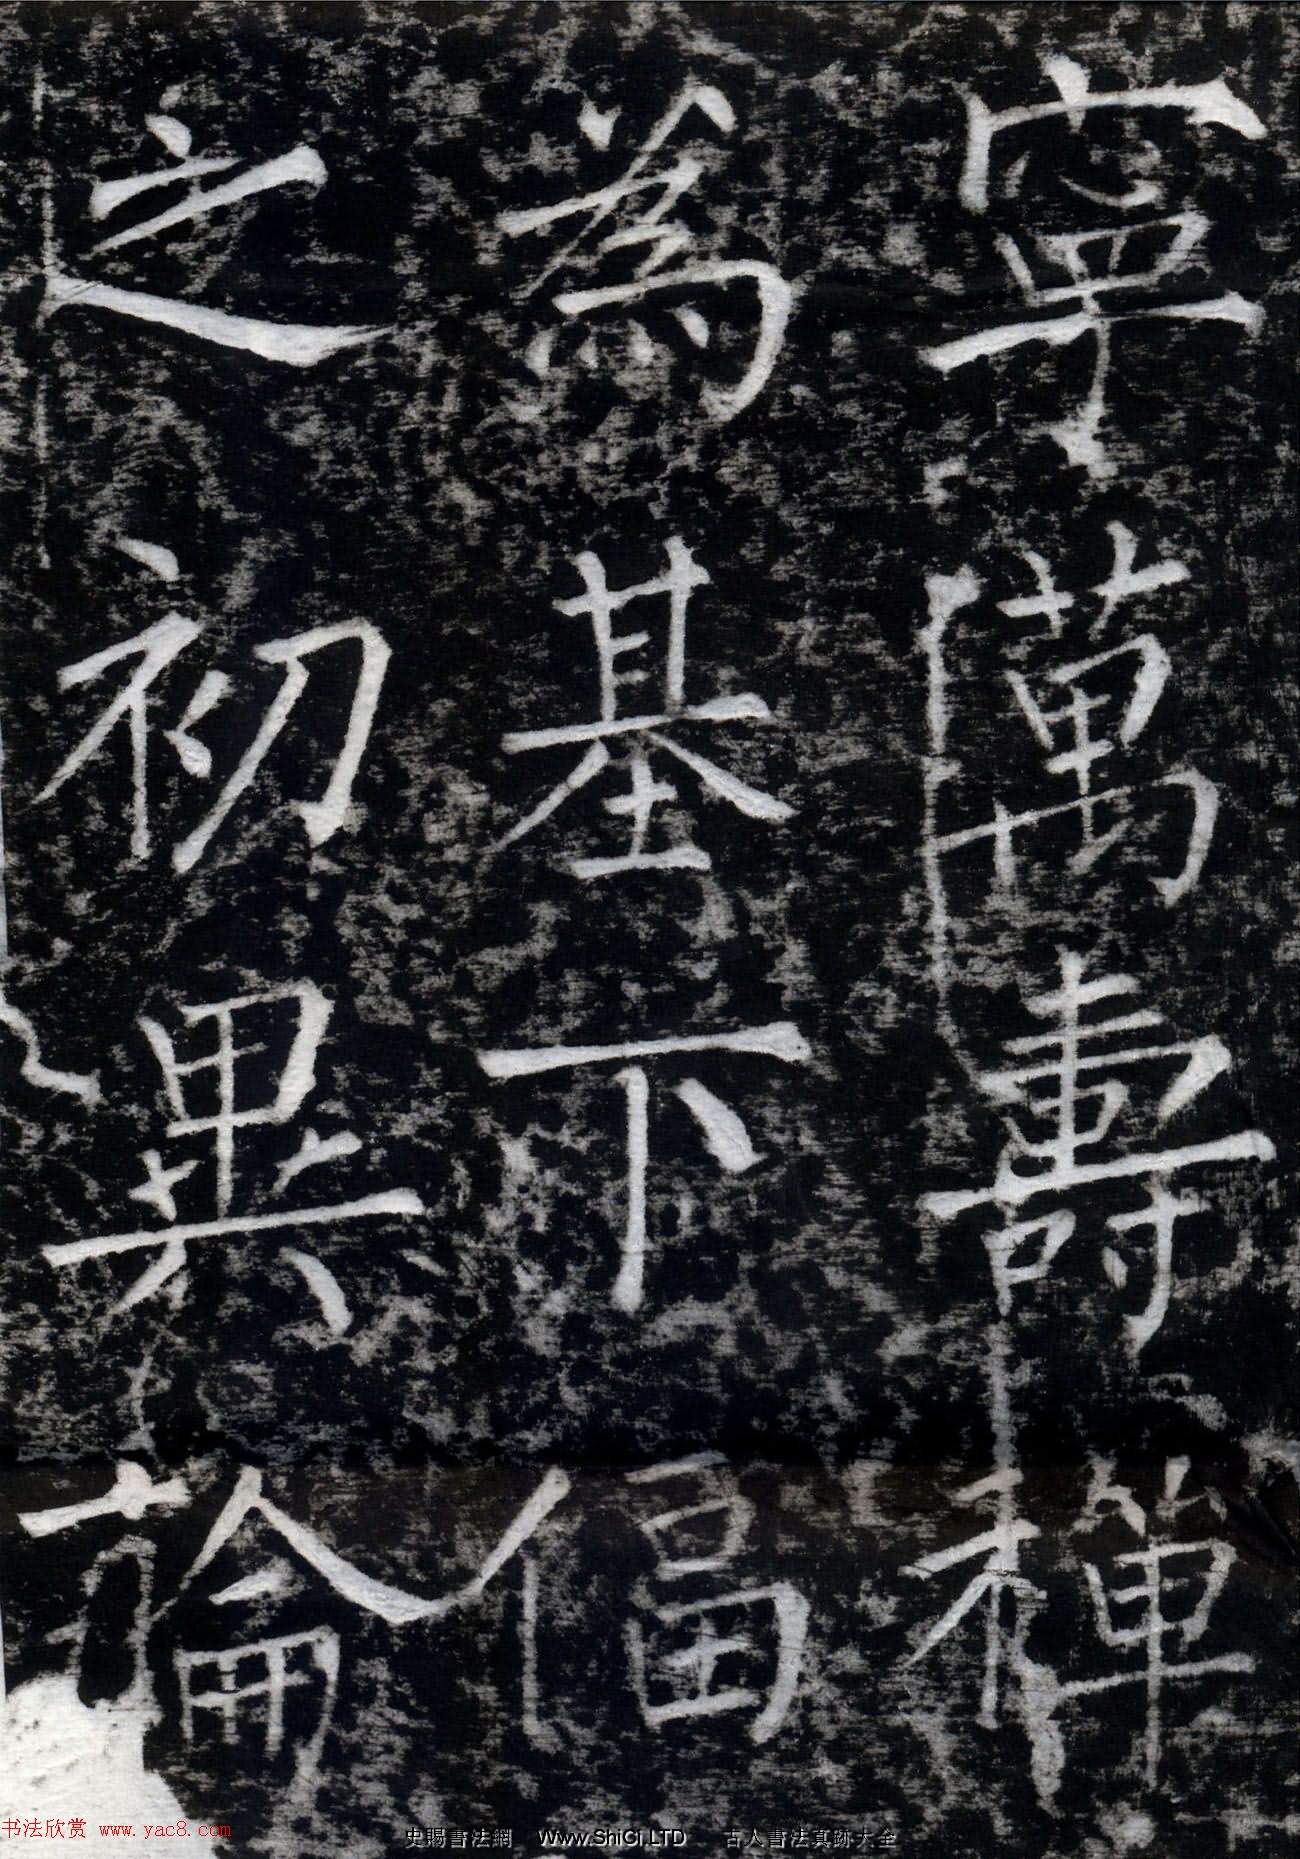 寜萬壽禪
為基下逼
之初異論
书法欣赏 www.yac8.com
史賜書法網 Www.ShiCi.LTD 古人書法真跡大全